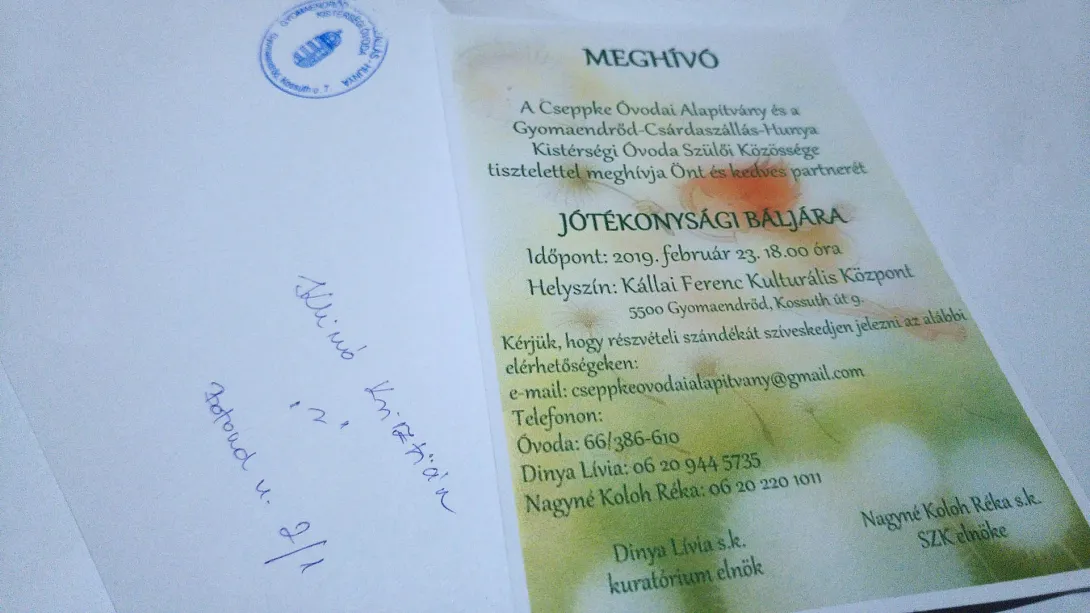 GYOMAENDRŐD
KISTÉRSÉGI ÓVODA
HUNYA
Kossuth u. 7.
Klimó Krisztián
"2"
Botond u. 2/1
MEGHÍVÓ
A Cseppke Óvodai Alapítvány és a
Gyomaendrőd-Csárdaszállás-Hunya
Kistérségi Óvoda Szülői Közössége
tisztelettel meghívja Önt és kedves partnerét
JÓTÉKONYSÁGI BÁLJÁRA
Időpont: 2019. február 23. 18.00 óra
Helyszín: Kállai Ferenc Kulturális Központ
5500 Gyomaendrőd, Kossuth út 9.
Kérjük, hogy részvételi szándékát szíveskedjen jelezni az alábbi
elérhetőségeken:
e-mail: cseppkeovodaialapitvany@gmail.com
Telefonon:
Óvoda: 66/386-610
Dinya Lívia: 06 20 944 5735
Nagyné Koloh Réka: 06 20 220 1011
Dinya Lívia s.k.
kuratórium elnök
Nagyné Koloh Réka s.k.
SZK elnöke